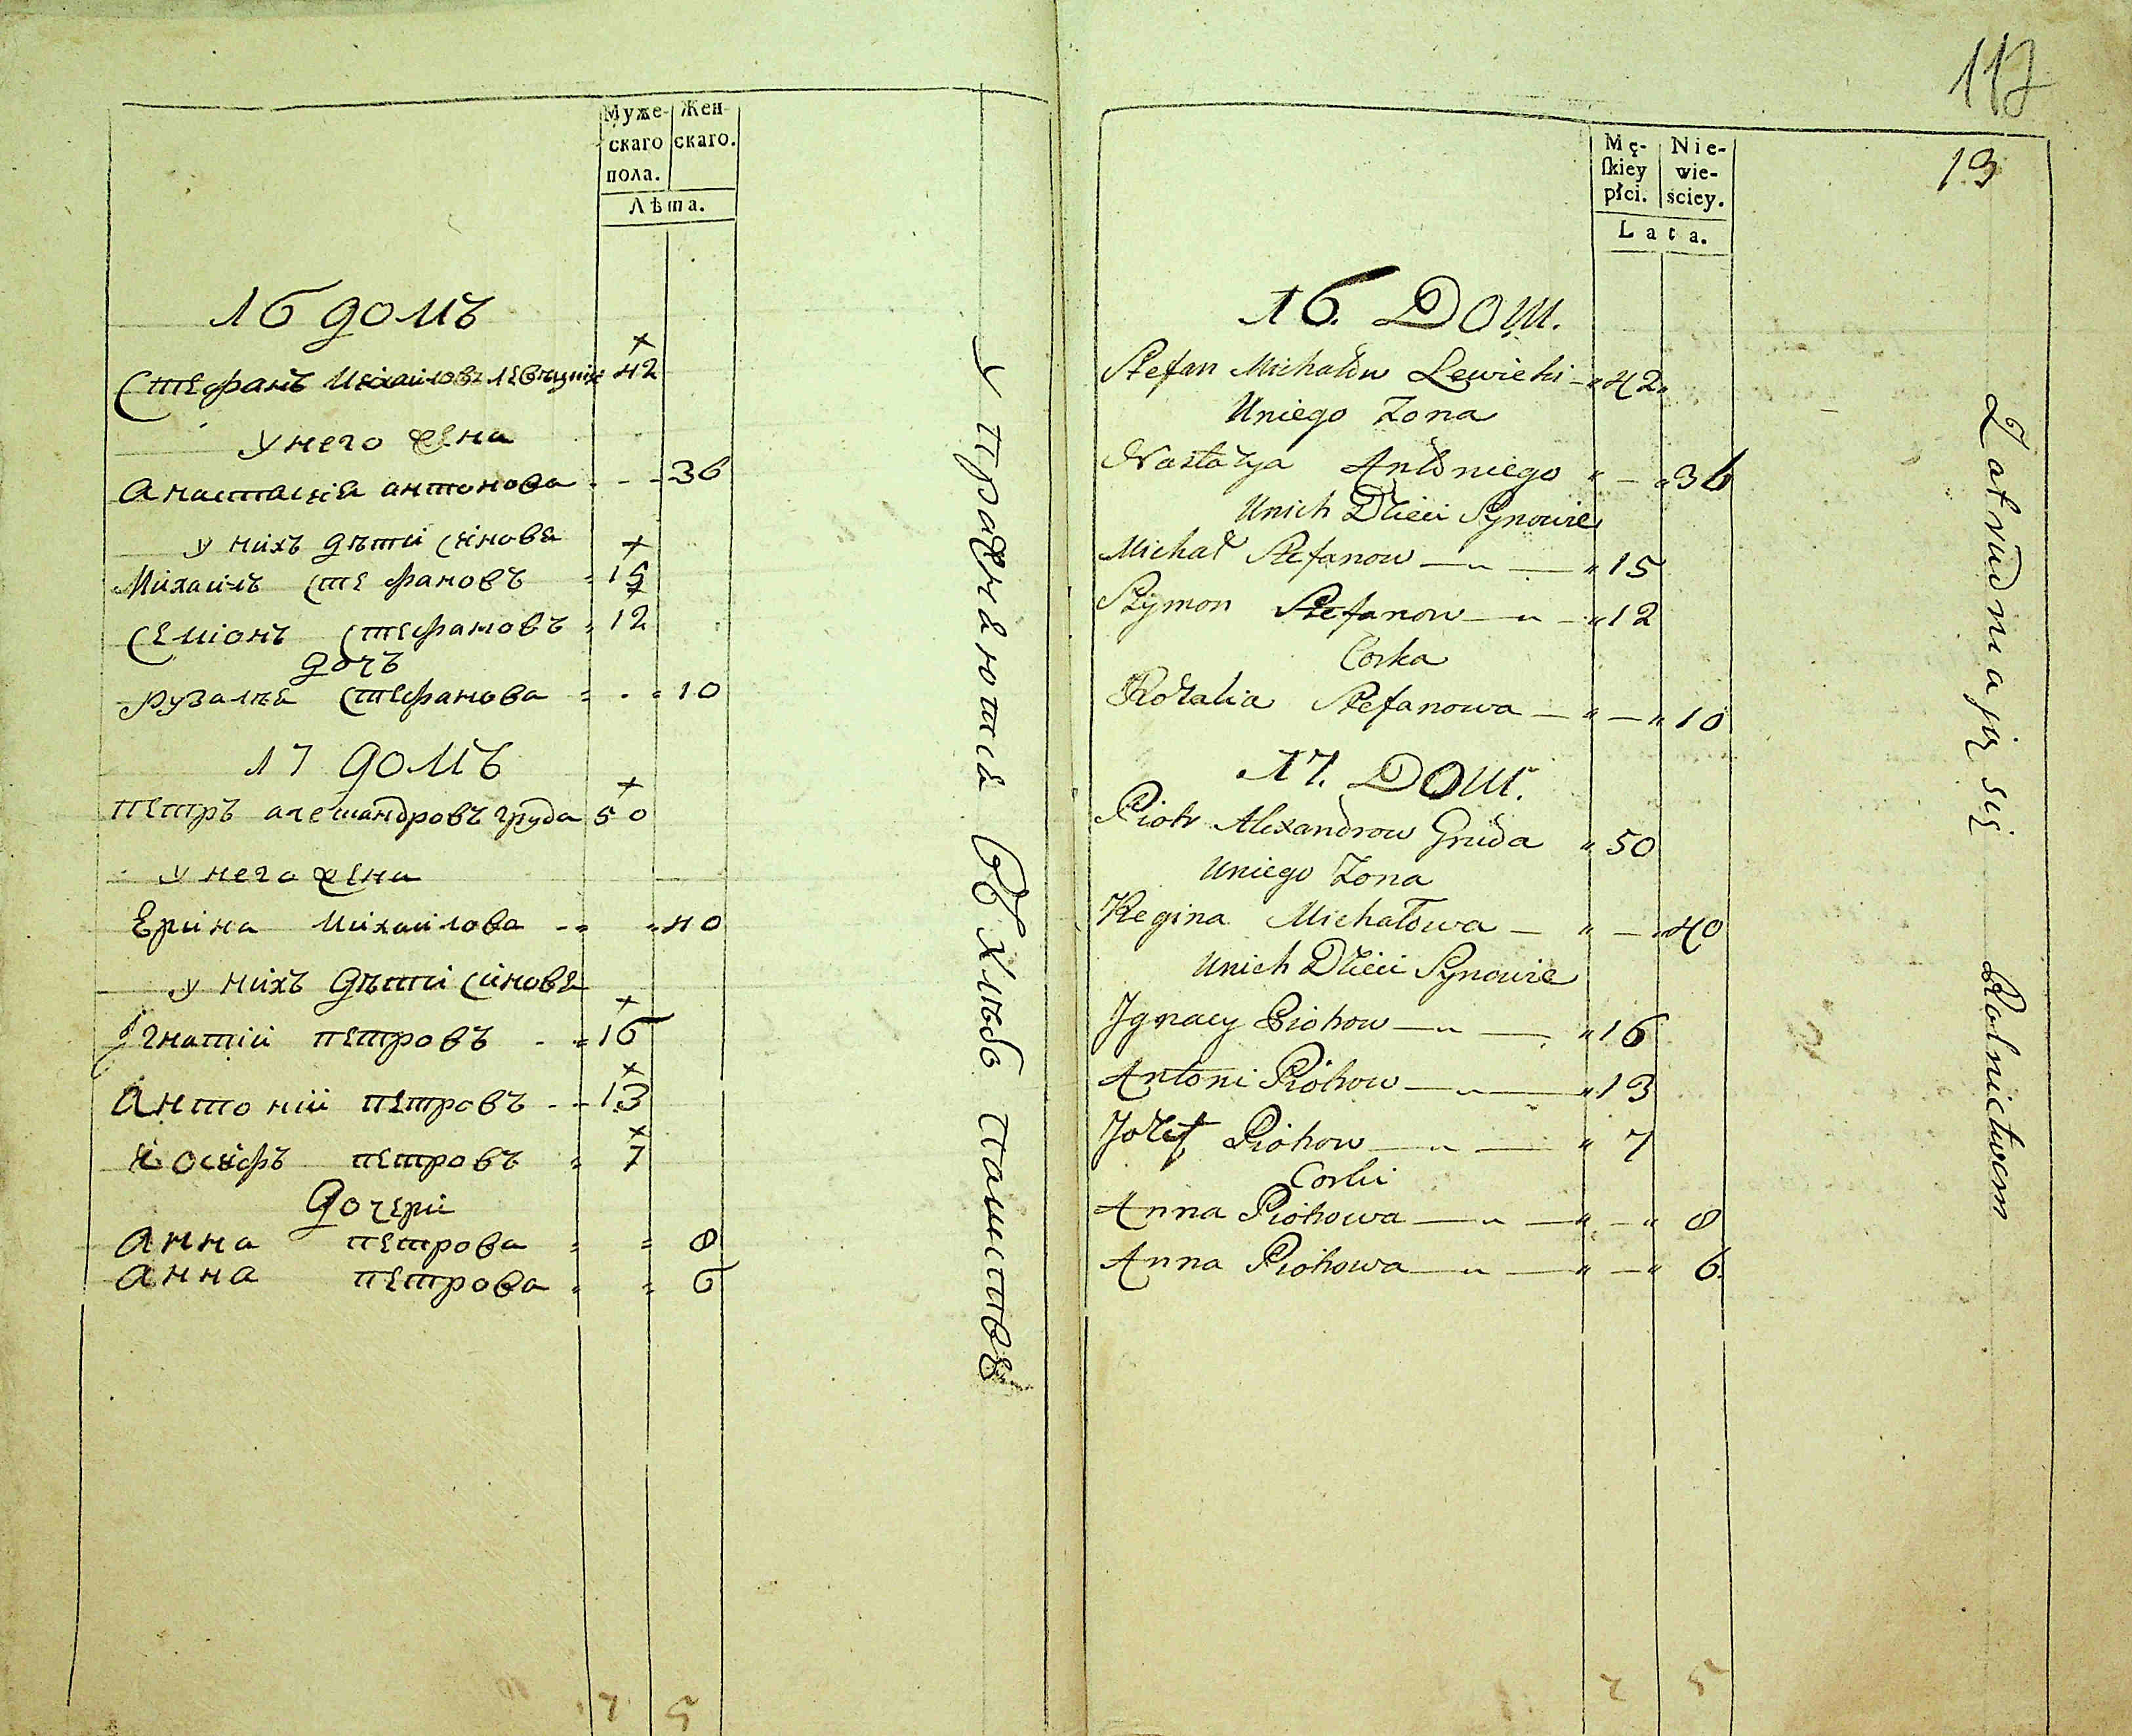 Муже- Жен-
скаго скаго.
пола.
Лѣта.
16 домъ
Стефанъ Михаиловъ Левицкiй 42
У него жена
Анастасия антонова - - 36
у нихъ дѣти синове
Михаилъ Стефановъ = 15
Семионъ Стефановъ = 12
дочъ
Рузалѣя Стефанова = . = 10
17 домъ
петръ алешандровъ груда 50
у него жена
Ерина Михаилова - = = 40
у нихъ дѣти синове
Игнатiй петровъ - = 16
Антонiй петровъ - - 13
Иосифъ петровъ = 7
Дочери
Анна петрова = = 8
Анна петрова = = 6
7 5
Упражняются въ хлѣбопашествѣ
117
Mę- Nie-
skiey wie-
płci. sciey.
Lata.
13
16. Dom.
Stefan Michałow Lewicki - " 42 "
Uniego Zona
Nastazya Antoniego " — " 36
Unich Dzieci Synowie
Michał Stefanow — " — " 15
Szymon Stefanow — " — " 12
Corka
Rozalia Stefanowa — " — " 10
17. Dom.
Piotr Alexandrow Gruda " 50
Uniego Zona
Regina Michałowa — " — " 40
Unich Dzieci Synowie
Jgnacy Piotrow — " — " 16
Antoni Piotrow — " — " 13
Jozef Piotrow — " — " 7
Corki
Anna Piotrowa — " — " — " 8
Anna Piotrowa — " — " — " 6.
7 5
Zatrudniają się Rolnictwem